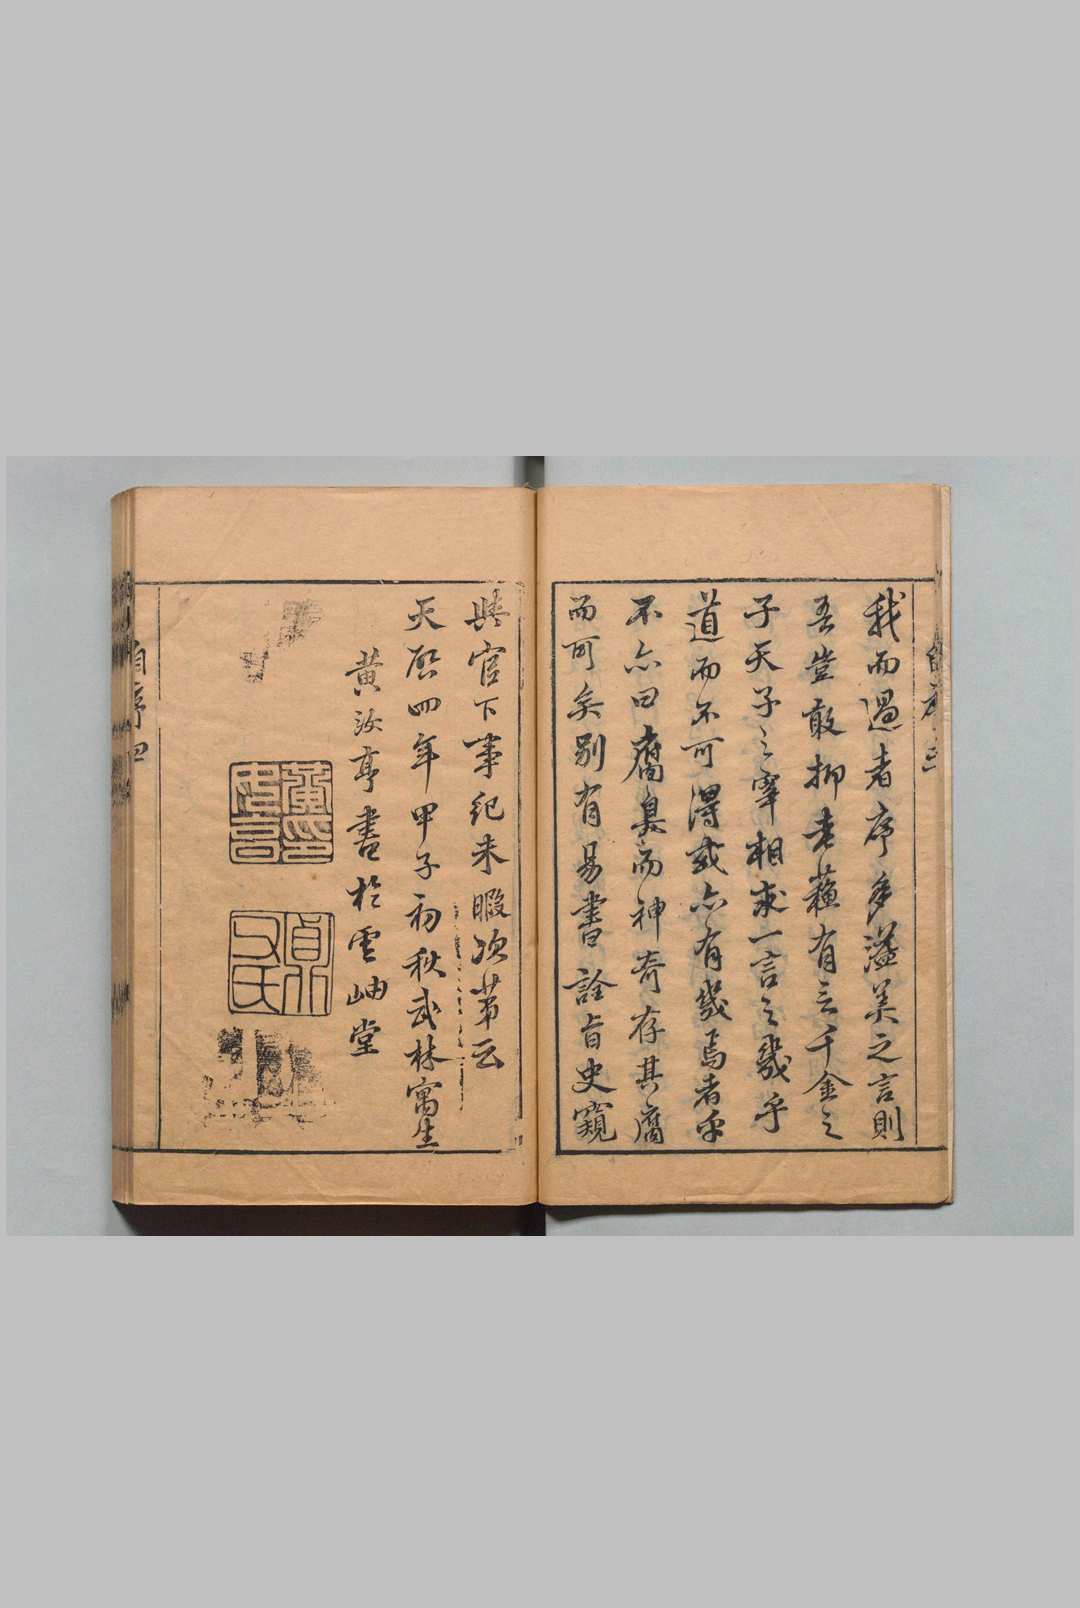 我而過者序多溢美之言則
吾豈敢抑老蘓有云千金之
子天子之宰相求一言之幾乎
道而不可得或亦有幾焉者乎
不亦曰腐臭而神奇存其腐
而可矣别有易書詮旨史窺
與官下事紀未暇次第云
天啓四年甲子初秋武林寓生
黄汝亨書於雲岫堂
貞父氏
自序 四